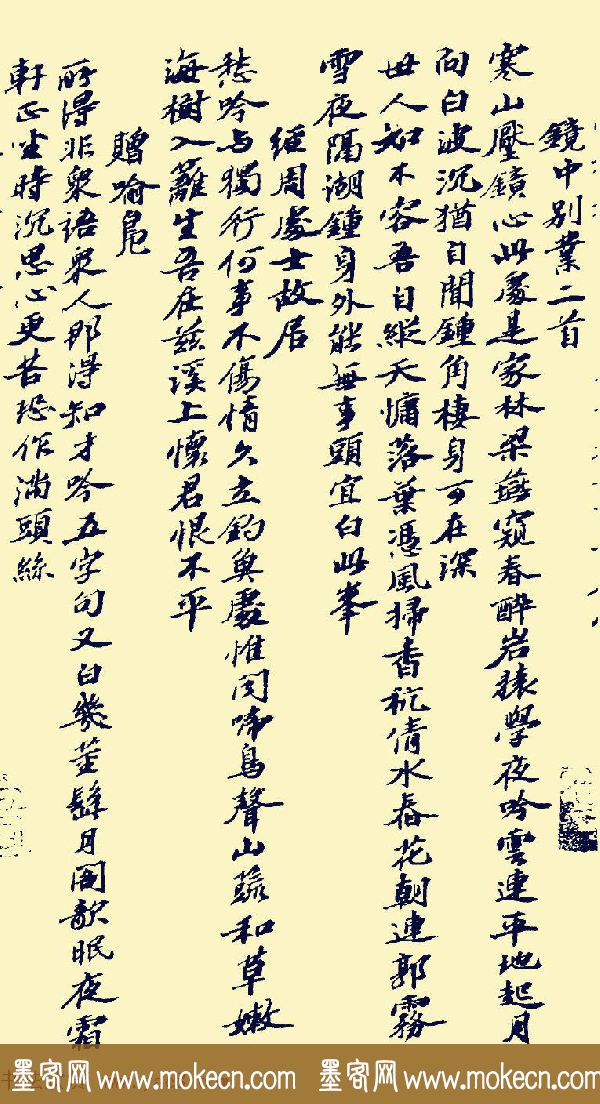 鏡中別業二首
寒山壓鏡心此處是家林梁燕窺春醉岩猿學夜吟雲連平地起月
向白波沉猶自聞鍾角棲身可在深
世人如不容吾自縱天慵落葉憑風掃香秔倩水舂花朝連郭霧
雪夜隔湖鍾身外能無事頭宜白此峯
經周處士故居
愁吟與獨行何事不傷情久立釣魚處惟聞啼鳥聲山蔬和草嫩
海樹入籬生吾在茲溪上懷君恨不平
贈喻鳧
所得非衆語衆人那得知才吟五字句又白幾莖髭月閣欹眠夜霜
軒正坐時沉思心更苦恐作滿頭絲
墨客网 www.mokecn.com 墨客网 www.mokecn.com